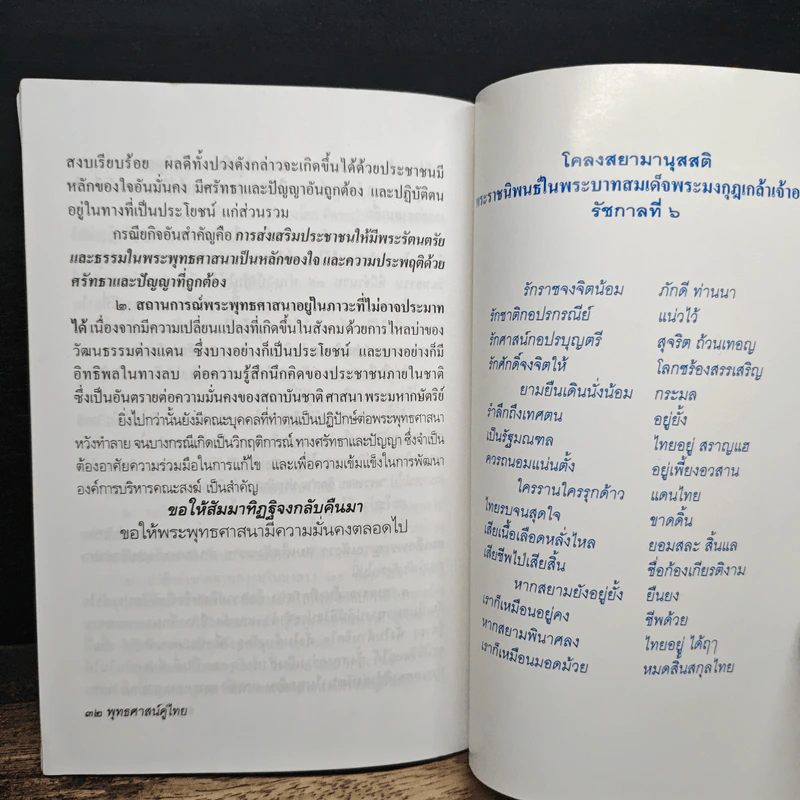 สงบเรียบร้อย ผลดีทั้งปวงดังกล่าวจะเกิดขึ้นได้ด้วยประชาชนมี
หลักของใจอันมั่นคง มีศรัทธาและปัญญาอันถูกต้อง และปฏิบัติตน
อยู่ในทางที่เป็นประโยชน์ แก่ส่วนรวม
กรณียกิจอันสำคัญคือ การส่งเสริมประชาชนให้มีพระรัตนตรัย
และธรรมในพระพุทธศาสนาเป็นหลักของใจ และความประพฤติด้วย
ศรัทธาและปัญญาที่ถูกต้อง
๒. สถานการณ์พระพุทธศาสนาอยู่ในภาวะที่ไม่อาจประมาท
ได้ เนื่องจากมีความเปลี่ยนแปลงที่เกิดขึ้นในสังคมด้วยการไหลบ่าของ
วัฒนธรรมต่างแดน ซึ่งบางอย่างก็เป็นประโยชน์ และบางอย่างก็มี
อิทธิพลในทางลบ ต่อความรู้สึกนึกคิดของประชาชนภายในชาติ
ซึ่งเป็นอันตรายต่อความมั่นคงของสถาบันชาติ ศาสนา พระมหากษัตริย์
ยิ่งไปกว่านั้นยังมีคณะบุคคลที่ทำตนเป็นปฏิปักษ์ต่อพระพุทธศาสนา
หวังทำลาย จนบางกรณีเกิดเป็นวิกฤติการณ์ ทางศรัทธาและปัญญา ซึ่งจำเป็น
ต้องอาศัยความร่วมมือในการแก้ไข และเพื่อความเข้มแข็งในการพัฒนา
องค์การบริหารคณะสงฆ์ เป็นสำคัญ
ขอให้สัมมาทิฏฐิจงกลับคืนมา
ขอให้พระพุทธศาสนามีความมั่นคงตลอดไป
๓๒ พุทธศาสน์คู่ไทย
โคลงสยามานุสสติ
พระราชนิพนธ์ในพระบาทสมเด็จพระมงกุฎเกล้าเจ้าอ
รัชกาลที่ ๖
รักราชจงจิตน้อม ภักดี ท่านนา
รักชาติกอปรกรณีย์ แน่วไว้
รักศาสน์กอปรบุญตรี สุจริต ถ้วนเทอญ
รักศักดิ์จงจิตให้ โลกซร้องสรรเสริญ
ยามยืนเดินนั่งน้อม กระมล
รำลึกถึงเทศตน อยู่ยั้ง
เป็นรัฐมณฑล ไทยอยู่ สราญแฮ
ควรถนอมแน่นตั้ง อยู่เพี้ยงอวสาน
ใครรานใครรุกด้าว แดนไทย
ไทยรบจนสุดใจ ขาดดิ้น
เสียเนื้อเลือดหลั่งไหล ยอมสละ สิ้นแล
เสียชีพไปเสียสิ้น ชื่อก้องเกียรติงาม
หากสยามยังอยู่ยั้ง ยืนยง
เราก็เหมือนอยู่คง ชีพด้วย
หากสยามพินาศลง ไทยอยู่ ได้ฤๅ
เราก็เหมือนมอดม้วย หมดสิ้นสกุลไทย